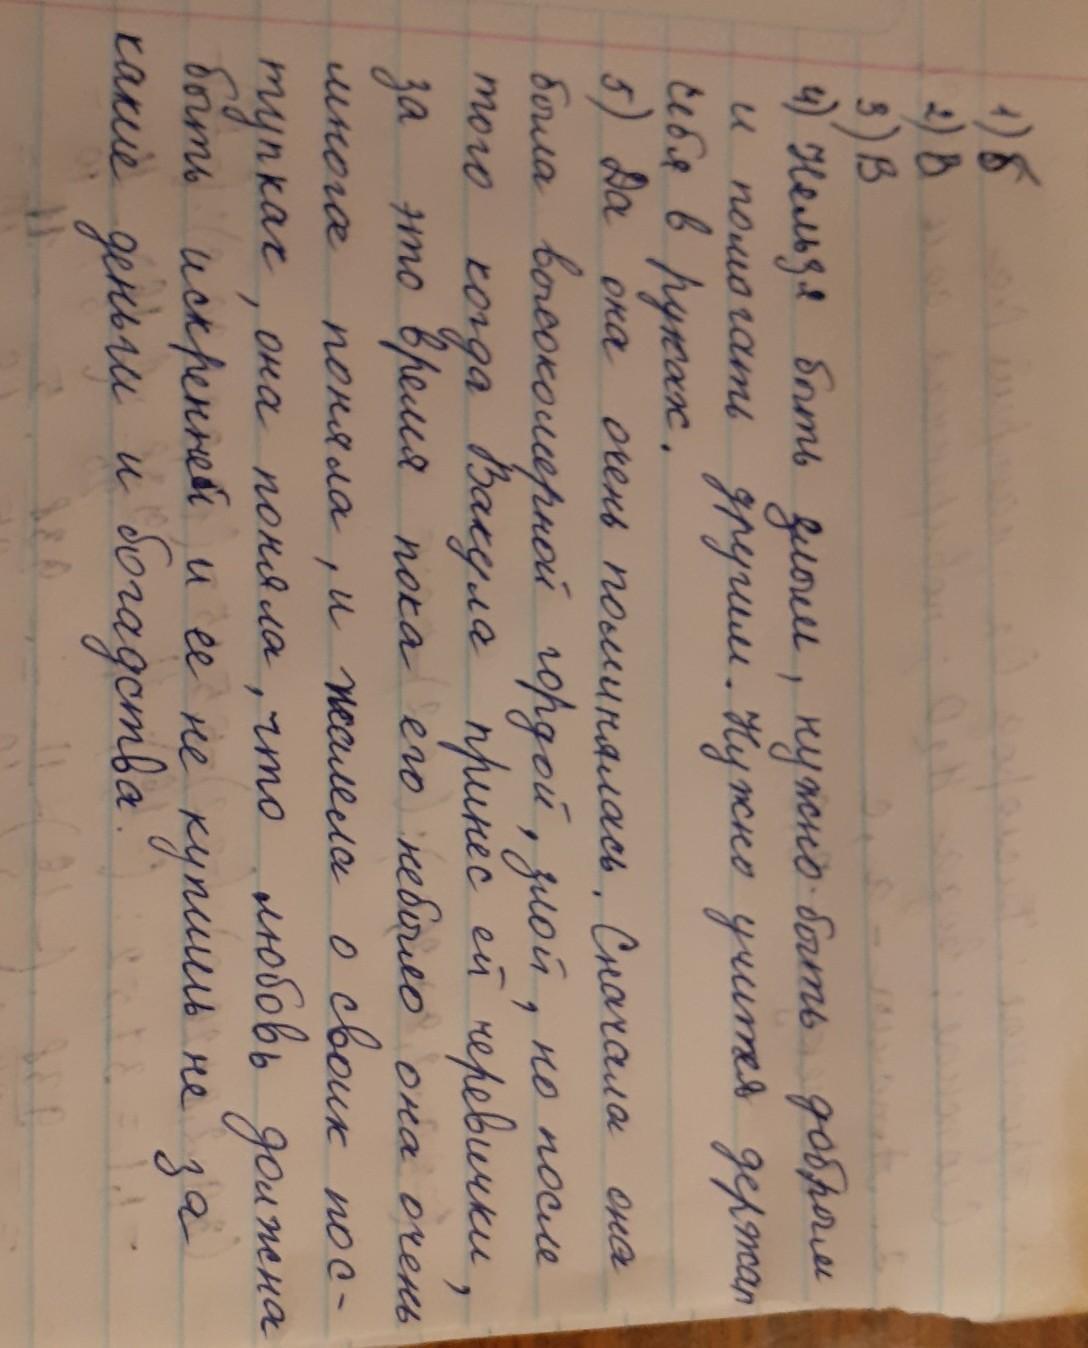 1) Б
2) В
3) В
4) Нельзя быть злым, нужно быть добрым
и помогать другим. Нужно учится держат
себя в руках.
5) Да она очень поминялась. Сначала она
была высокомерной гордой, злой, но после
того когда Вакула принёс ей черевички,
за это время пока его небыло она очень
многое поняла, и жалела о своих пос-
тупках, она поняла, что любовь должна
быть искренней и ее не купишь не за
какие деньги и богадства.